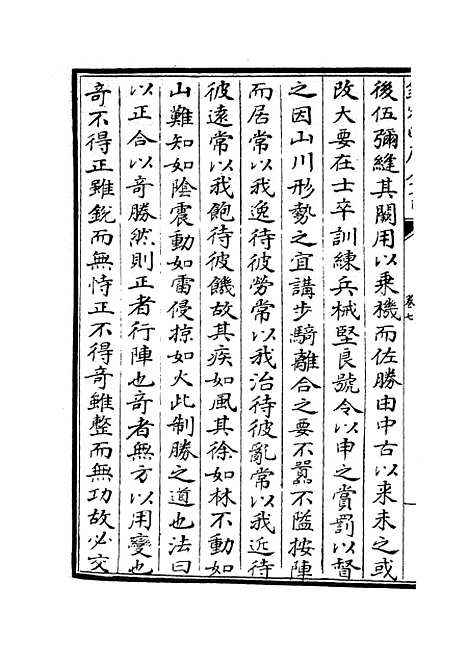 後伍彌縫其闕用以乗機而佐勝由中古以来未之或
改大要在士卒訓練兵械堅良號令以申之賞罰以督
之因山川形勢之宜講步騎離合之要不嚚不隘按陣
而居常以我逸待彼勞常以我治待彼亂常以我近待
彼遠常以我飽待彼饑故其疾如風其徐如林不動如
山難知如陰震動如雷侵掠如火此制勝之道也法曰
以正合以奇勝然則正者行陣也奇者無方以用變也
奇不得正雖銳而無恃正不得奇雖整而無功故必交
卷七